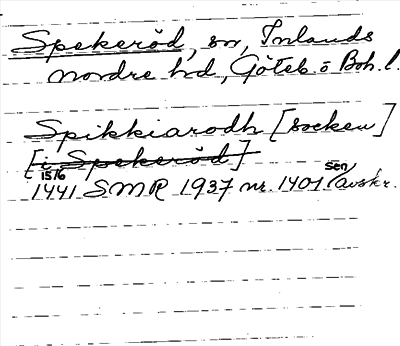 Spekeröd, sn, Inlands
nordre hd, Göteb. o Boh. l.
Spikkiarodh [socken]
[i Spekeröd]
15/6 sen
1441 SMR 1937 nr. 1401 avskr.